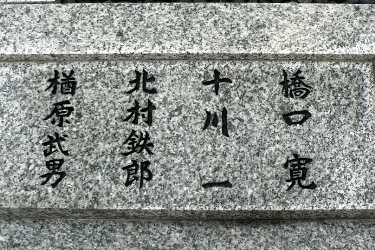 橋口寛
十川一
北村鉄郎
楢原武男